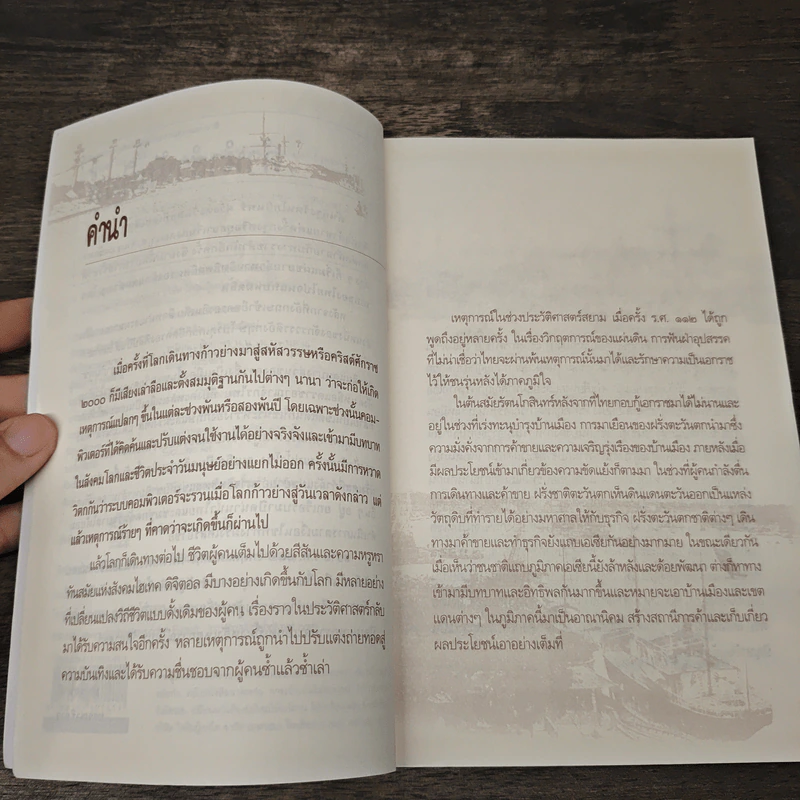 คำนำ
เมื่อครั้งที่โลกเดินทางก้าวย่างมาสู่สหัสวรรษหรือคริสต์ศักราช
๒๐๐๐ ก็มีเสียงเล่าลือและตั้งสมมุติฐานกันไปต่างๆ นานา ว่าจะก่อให้เกิด
เหตุการณ์แปลกๆ ขึ้นในแต่ละช่วงพันหรือสองพันปี โดยเฉพาะช่วงนั้นคอม-
พิวเตอร์ที่ได้คิดค้นและปรับแต่งจนใช้งานได้อย่างจริงจังและเข้ามามีบทบาท
ในสังคมโลกและชีวิตประจำวันมนุษย์อย่างแยกไม่ออก ครั้งนั้นมีการหวาด
วิตกกันว่าระบบคอมพิวเตอร์จะรวนเมื่อโลกก้าวย่างสู่วันเวลาดังกล่าว แต่
แล้วเหตุการณ์ร้ายๆ ที่คาดว่าจะเกิดขึ้นก็ผ่านไป
แล้วโลกก็เดินทางต่อไป ชีวิตผู้คนเต็มไปด้วยสีสันและความหรูหรา
ทันสมัยแห่งสังคมไฮเทค ดิจิตอล มีบางอย่างเกิดขึ้นกับโลก มีหลายอย่าง
ที่เปลี่ยนแปลงวิถีชีวิตแบบดั้งเดิมของผู้คน เรื่องราวในประวัติศาสตร์กลับ
มาได้รับความสนใจอีกครั้ง หลายเหตุการณ์ถูกนำไปปรับแต่งถ่ายทอดสู่
ความบันเทิงและได้รับความชื่นชอบจากผู้คนซ้ำแล้วซ้ำเล่า
เหตุการณ์ในช่วงประวัติศาสตร์สยาม เมื่อครั้ง ร.ศ. ๑๑๒ ได้ถูก
พูดถึงอยู่หลายครั้ง ในเรื่องวิกฤตการณ์ของแผ่นดิน การฟันฝ่าอุปสรรค
ที่ไม่น่าเชื่อว่าไทยจะผ่านพ้นเหตุการณ์นั้นมาได้และรักษาความเป็นเอกราช
ไว้ให้ชนรุ่นหลังได้ภาคภูมิใจ
ในต้นสมัยรัตนโกสินทร์หลังจากที่ไทยกอบกู้เอกราชมาได้ไม่นานและ
อยู่ในช่วงที่เร่งทะนุบำรุงบ้านเมือง การมาเยือนของฝรั่งตะวันตกนำมาซึ่ง
ความมั่งคั่งจากการค้าขายและความเจริญรุ่งเรืองของบ้านเมือง ภายหลังเมื่อ
มีผลประโยชน์เข้ามาเกี่ยวข้องความขัดแย้งก็ตามมา ในช่วงที่ผู้คนกำลังตื่น
การเดินทางและค้าขาย ฝรั่งชาติตะวันตกเห็นดินแดนตะวันออกเป็นแหล่ง
วัตถุดิบที่ทำรายได้อย่างมหาศาลให้กับธุรกิจ ฝรั่งตะวันตกชาติต่างๆ เดิน
ทางมาค้าขายและทำธุรกิจยังแถบเอเซียกันอย่างมากมาย ในขณะเดียวกัน
เมื่อเห็นว่าชนชาติแถบภูมิภาคเอเซียนี้ยังล้าหลังและด้อยพัฒนา ต่างก็หาทาง
เข้ามามีบทบาทและอิทธิพลกันมากขึ้นและหมายจะเอาบ้านเมืองและเขต
แดนต่างๆ ในภูมิภาคนี้มาเป็นอาณานิคม สร้างสถานีการค้าและเก็บเกี่ยว
ผลประโยชน์เอาอย่างเต็มที่